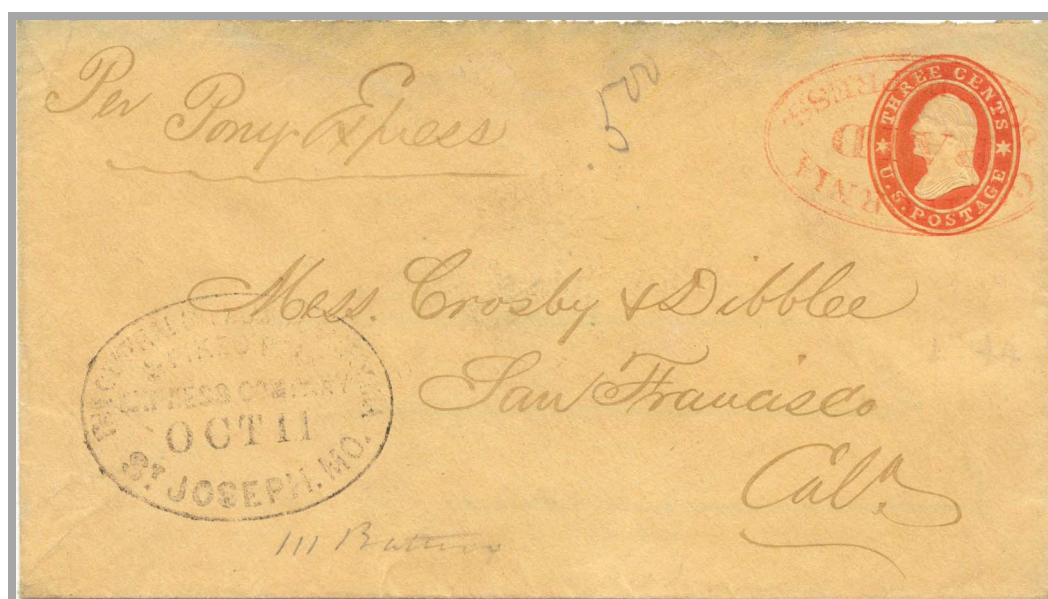 Per Pony Express
500
THREE CENTS
U.S. POSTAGE
PAID
Mess. Crosby & Dibblee
San Francisco
Cal.
EXPRESS COMPANY
OCT 11
ST JOSEPH. MO.
111